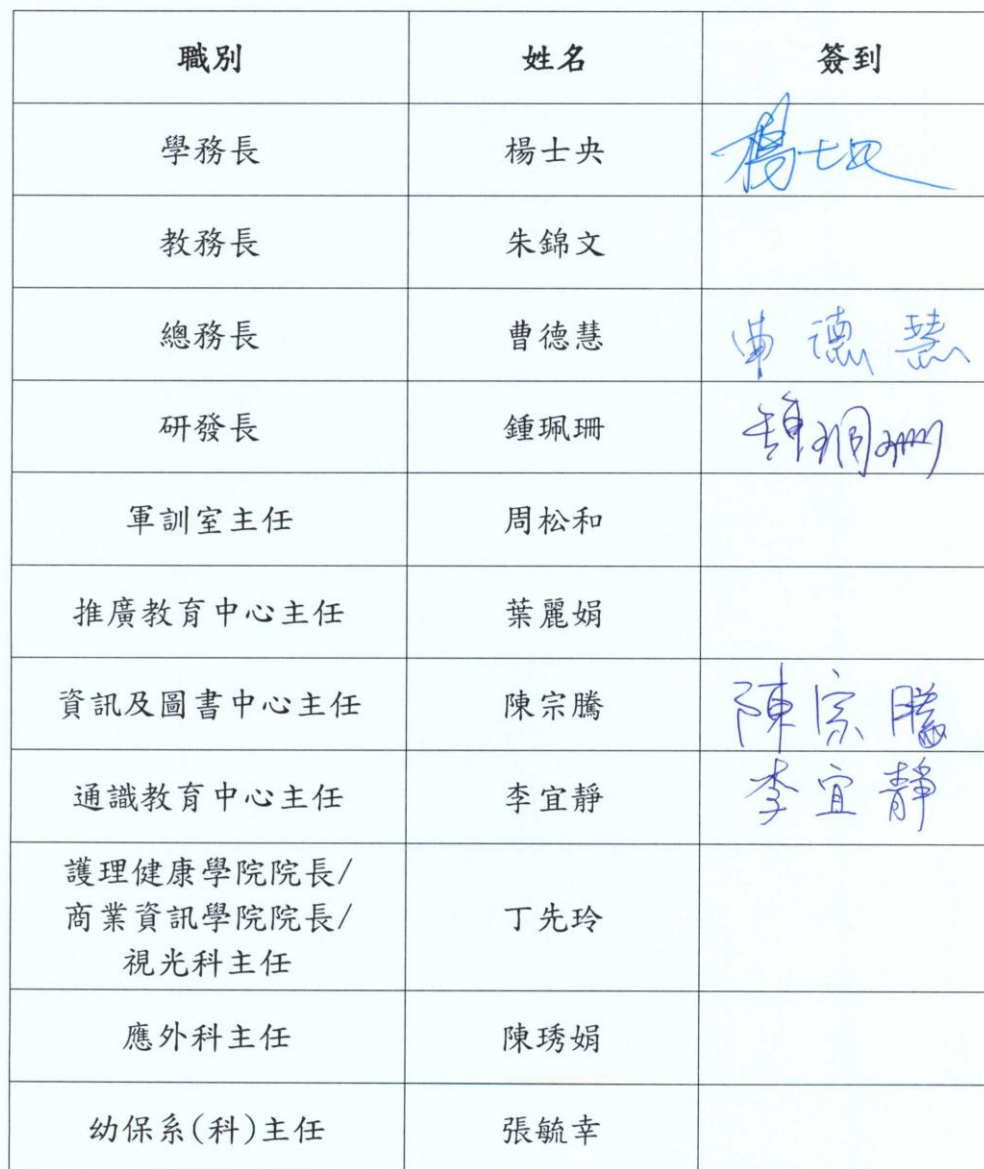 職別 姓名 簽到
學務長 楊士央 楊士央
教務長 朱錦文
總務長 曹德慧 曹德慧
研發長 鍾珮珊 鍾珮珊
軍訓室主任 周松和
推廣教育中心主任 葉麗娟
資訊及圖書中心主任 陳宗騰 陳宗騰
通識教育中心主任 李宜靜 李宜靜
護理健康學院院長/
商業資訊學院院長/ 丁先玲
視光科主任
應外科主任 陳琇娟
幼保系(科)主任 張毓幸